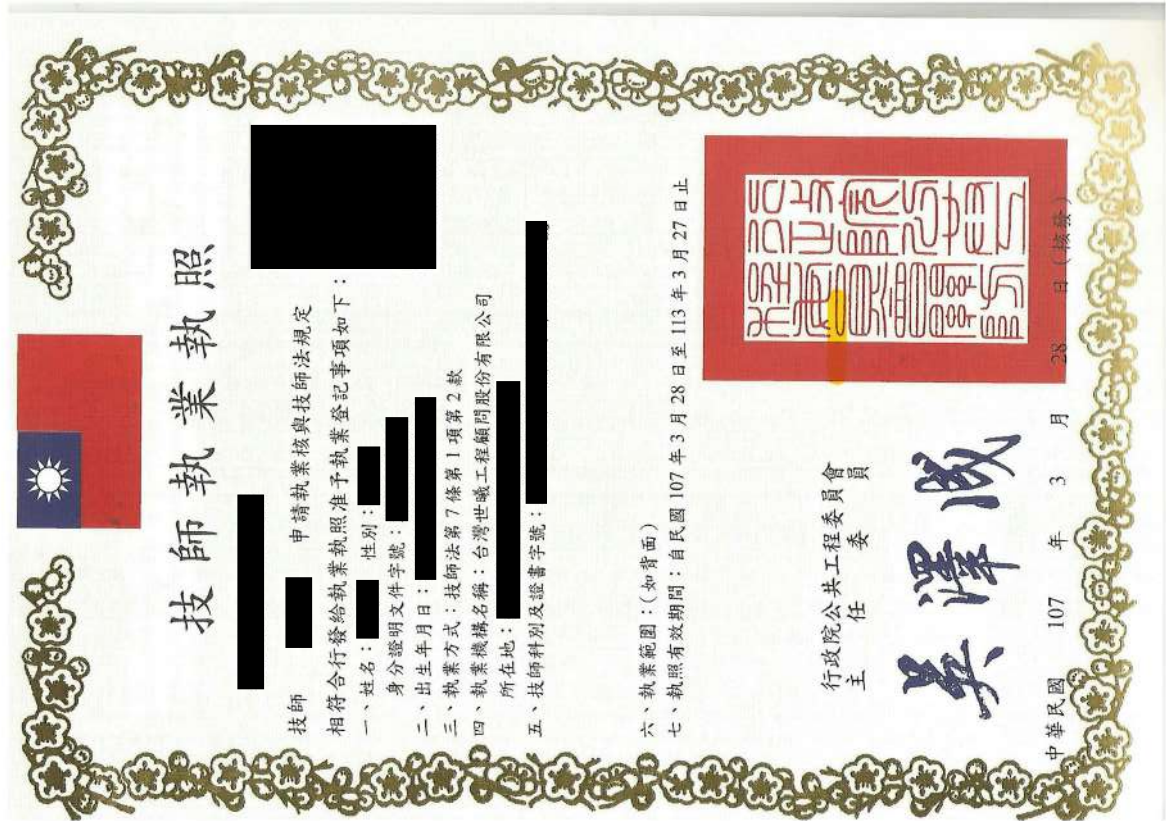 技師執業執照
技師 申請執業核與技師法規定
相符合行發給執業執照准予執業登記事項如下：
一、姓名： 性別：
身分證明文件字號：
二、出生年月日：
三、執業方式：技師法第7條第1項第2款
四、執業機構名稱：台灣世曦工程顧問股份有限公司
所在地：
五、技師科別及證書字號：
六、執業範圍：(如背面)
七、執照有效期間：自民國107年3月28日至113年3月27日止
行政院公共工程委員會
主任委員
吳澤成
中華民國 107 年 3 月 28 日(核發)